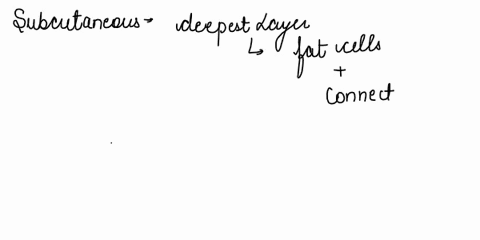 Subcutaneous - deepest layer
↳ fat cells
+
Connect